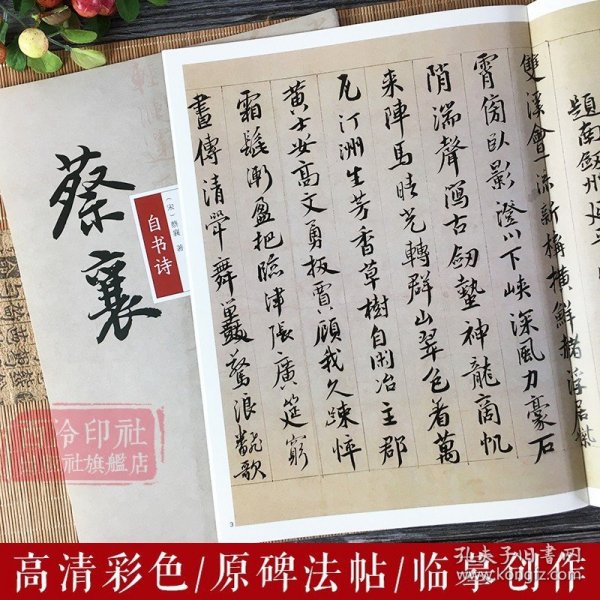 題南劔州延平
雙溪會一流新構橫鮮赭浮居紫
霄傍卧影澄川下峽深風力豪石
隋湍聲瀉古劔蟄神龍商帆
来陣馬晴光轉群山翠色着萬
瓦汀洲生芳香草樹自閑冶主郡
黃士安高文勇扳賈顧我久踈悴
霜髭漸盈把臨津張廣筵窮
晝傳清斝舞鼉驚浪翻歌
3
蔡襄
(宋)蔡襄 著
自书诗
泠印社
社旗艦店
高清彩色/原碑法帖/临摹创作
孔夫子旧书网
www.kongfz.com